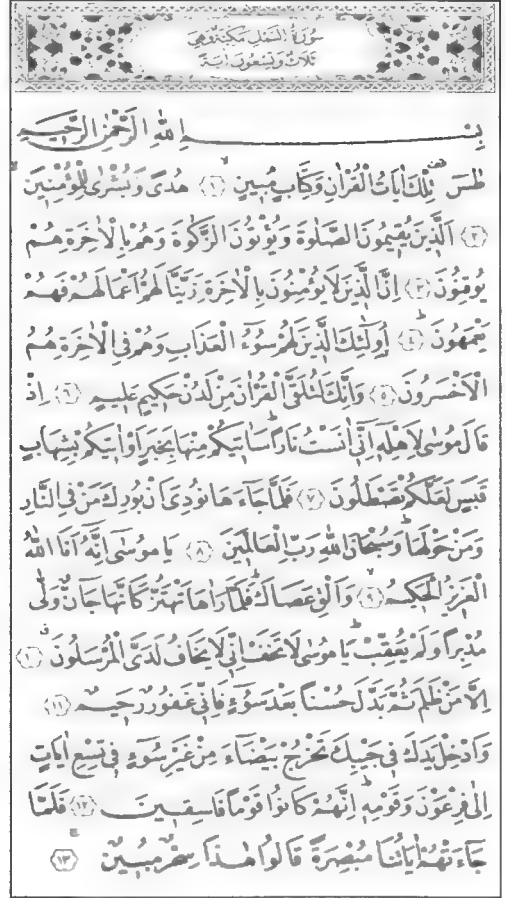 سُورَةُ النَّمْلِ مَكِّيَّةٌ وَهِيَ
ثَلَاثٌ وَتِسْعُونَ اٰيَةً
بِسْمِ اللّٰهِ الرَّحْمٰنِ الرَّحِيمِ
طٰسٓ تِلْكَ اٰيَاتُ الْقُرْاٰنِ وَكِتَابٍ مُبِينٍۙ ﴿١﴾ هُدًى وَبُشْرٰى لِلْمُؤْمِنِينَۙ
﴿٢﴾ اَلَّذِينَ يُقِيمُونَ الصَّلٰوةَ وَيُؤْتُونَ الزَّكٰوةَ وَهُمْ بِالْاٰخِرَةِ هُمْ
يُوقِنُونَ ﴿٣﴾ اِنَّ الَّذِينَ لَا يُؤْمِنُونَ بِالْاٰخِرَةِ زَيَّنَّا لَهُمْ اَعْمَالَهُمْ فَهُمْ
يَعْمَهُونَۜ ﴿٤﴾ اُولٰٓئِكَ الَّذِينَ لَهُمْ سُوٓءُ الْعَذَابِ وَهُمْ فِي الْاٰخِرَةِ هُمُ
الْاَخْسَرُونَ ﴿٥﴾ وَاِنَّكَ لَتُلَقَّى الْقُرْاٰنَ مِنْ لَدُنْ حَكِيمٍ عَلِيمٍ ﴿٦﴾ اِذْ
قَالَ مُوسٰى لِاَهْلِهٖٓ اِنِّٓي اٰنَسْتُ نَارًاۜ سَاٰتِيكُمْ مِنْهَا بِخَبَرٍ اَوْ اٰتِيكُمْ بِشِهَابٍ
قَبَسٍ لَعَلَّكُمْ تَصْطَلُونَ ﴿٧﴾ فَلَمَّا جَٓاءَهَا نُودِيَ اَنْ بُورِكَ مَنْ فِي النَّارِ
وَمَنْ حَوْلَهَاۜ وَسُبْحَانَ اللّٰهِ رَبِّ الْعَالَمِينَ ﴿٨﴾ يَا مُوسٰٓى اِنَّهُٓ اَنَا اللّٰهُ
الْعَزِيزُ الْحَكِيمُۙ ﴿٩﴾ وَاَلْقِ عَصَاكَۜ فَلَمَّا رَاٰهَا تَهْتَزُّ كَاَنَّهَا جَٓانٌّ وَلّٰى
مُدْبِرًا وَلَمْ يُعَقِّبْۜ يَا مُوسٰى لَا تَخَفْ اِنِّي لَا يَخَافُ لَدَيَّ الْمُرْسَلُونَۗ ﴿١٠﴾
اِلَّا مَنْ ظَلَمَ ثُمَّ بَدَّلَ حُسْنًا بَعْدَ سُوٓءٍ فَاِنِّي غَفُورٌ رَحِيمٌ ﴿١١﴾
وَاَدْخِلْ يَدَكَ فِي جَيْبِكَ تَخْرُجْ بَيْضَٓاءَ مِنْ غَيْرِ سُوٓءٍ فِي تِسْعِ اٰيَاتٍ
اِلٰى فِرْعَوْنَ وَقَوْمِهٖۜ اِنَّهُمْ كَانُوا قَوْمًا فَاسِقِينَ ﴿١٢﴾ فَلَمَّا
جَٓاءَتْهُمْ اٰيَاتُنَا مُبْصِرَةً قَالُوا هٰذَا سِحْرٌ مُبِينٌ ﴿١٣﴾